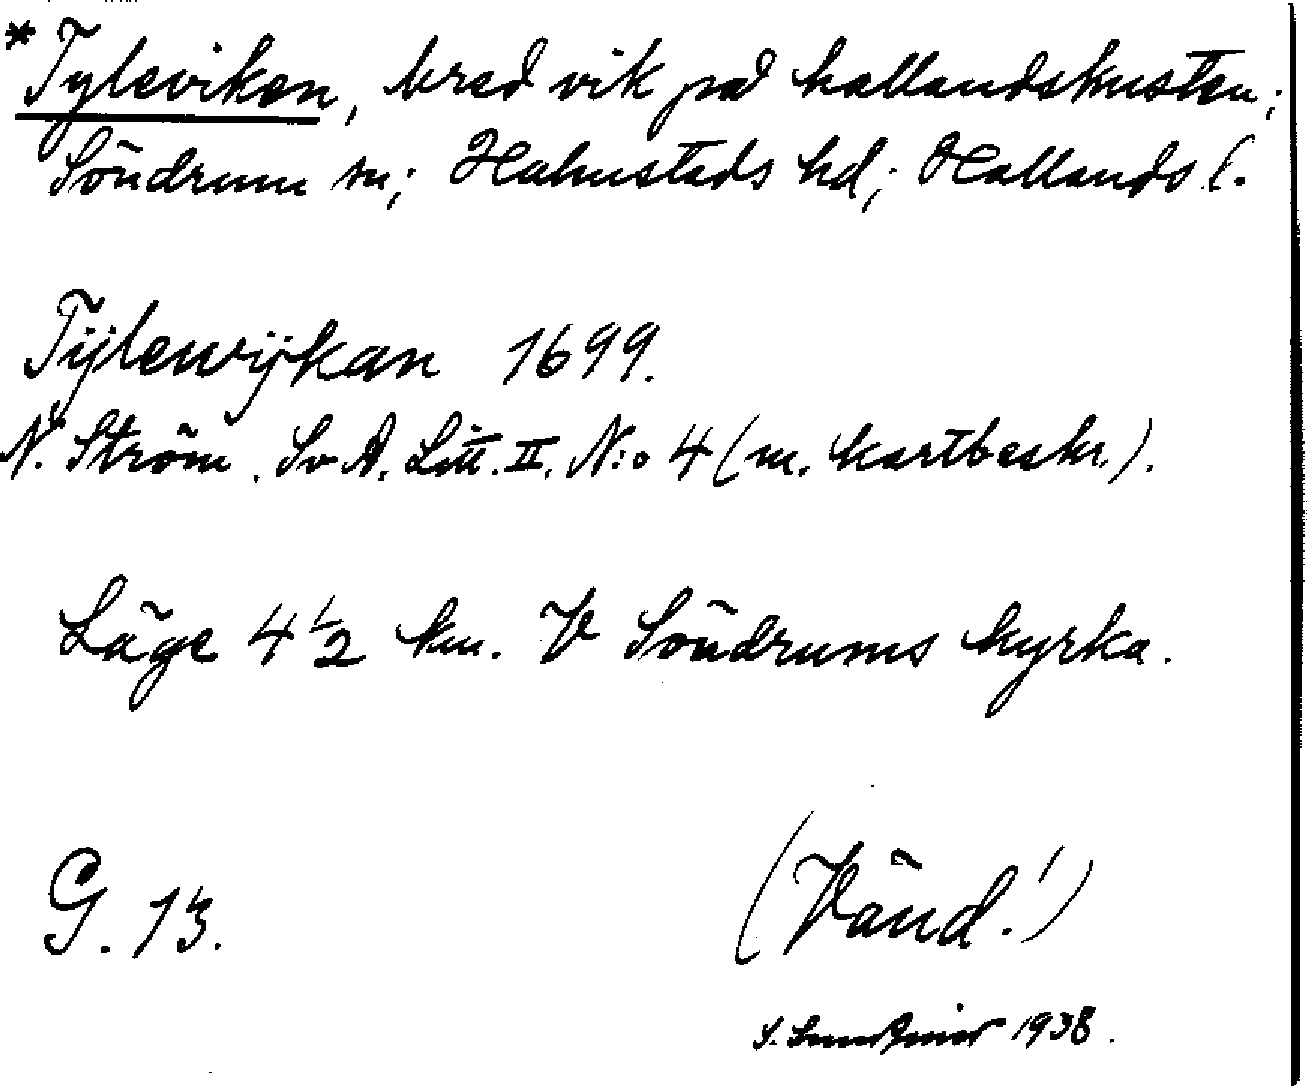 *Tyleviken, bred vik på hallandskusten;
Söndrum sn; Halmstads hd; Hallands l.
Tÿlewÿkan 1699.
N. Ström. Sv A. Litt. II. N:o 4 (m. kartbeskr.).
Läge 4 1/2 km. V Söndrums kyrka.
G. 13.
(Vänd!)
S. 1938.